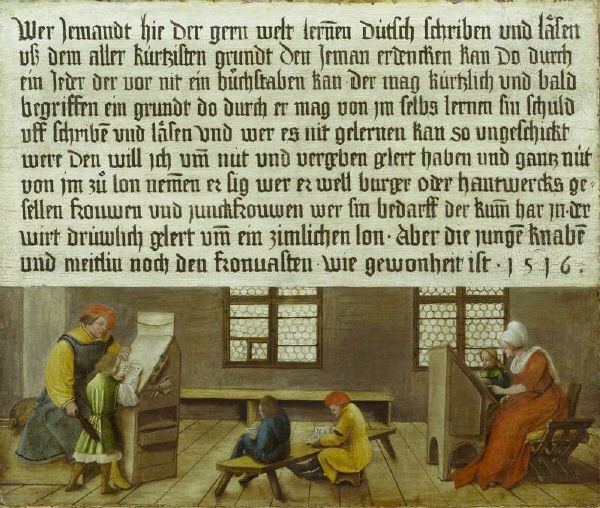 Wer Jemandt hie der gern welt lernen̄ Dütsch schriben und låsen
uß dem aller kürtzisten grundt den Jeman erdencken kan do durch
ein Jeder der vor nit ein bůchstaben kan · der mag kürtzlich und bald
begriffen ein grundt do durch er mag von jm selbs lernen sin schuld
uff schribē und låsen und wer es nit gelernen kan so ungeschickt
were den will jch um̄ nüt und vergeben gelert haben und gantz nüt
von jm zů lon nem̄en er sig wer er well burger oder hantwercks ge-
sellen frouwen und junckfrouwen wer sin bedarff der kum̄ har jn · der
wirt drüwlich gelert um̄ ein zimlichen lon · Aber die jungē knabē
und meitlin noch den fronuasten · wie gewonheit ist · 1516 ·